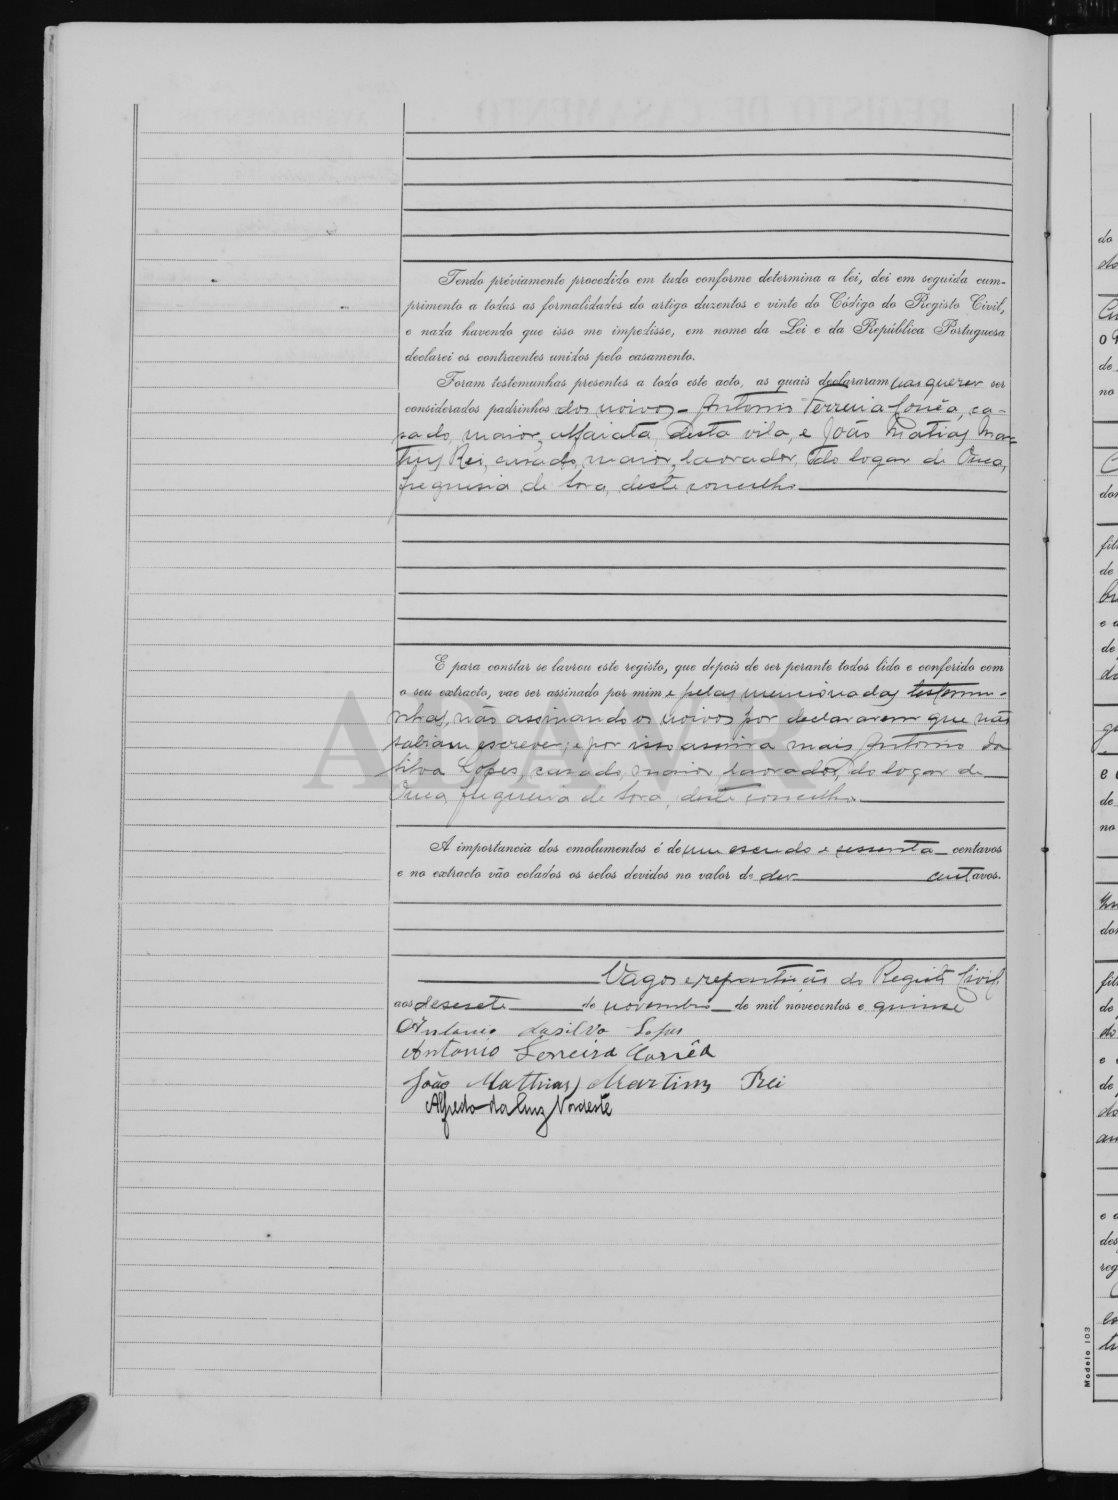 Tendo préviamente procedido em tudo conforme determina a lei, dei em seguida cum-
primento a todas as formalidades do artigo duzentos e vinte do Código do Registo Civil,
e nada havendo que isso me impedisse, em nome da Lei e da República Portuguesa
declarei os contraentes unidos pelo casamento.
Foram testemunhas presentes a todo este acto, as quais declararam não querer ser
considerados padrinhos dos noivos - Antonio Ferreira Corrêa, ca-
sado, maior, alfaiate, desta vila, e João Matias Mar-
tins Rei, casado, maior, lavrador, do logar de Ouca,
freguesia de Soza, deste concelho
E para constar se lavrou este registo, que depois de ser perante todos lido e conferido com
o seu extracto, vae ser assinado por mim e pelas mencionadas testemu-
nhas, não assinando os noivos por declararem que não
sabiam escrever; e por isso assina mais Antonio da
Silva Lopes, casado, maior, lavrador, do logar de
Ouca, freguesia de Soza, deste concelho
A importancia dos emolumentos é de um escudo e sessenta centavos
e no extracto vão colados os selos devidos no valor de dez centavos.
Vagos e repartição do Registo Civil
aos desesete de novembro de mil novecentos e quinze
Antonio da silva Lopes
Antonio Ferreira Corrêa
João Mathias Martins Rei
Alfredo da Luz Nordeste
ADAVR
Modelo 103